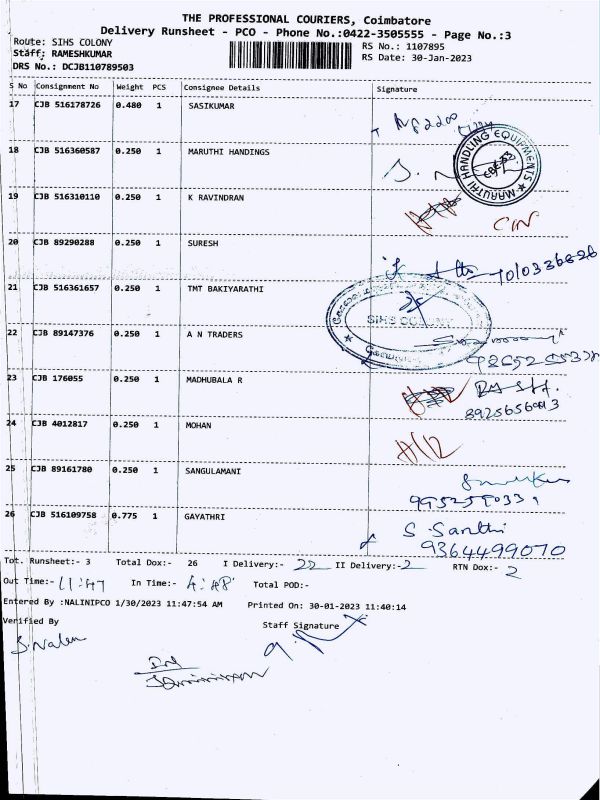 THE PROFESSIONAL COURIERS, Coimbatore
Delivery Runsheet - PCO - Phone No.:0422-3505555 - Page No.:3
Route: SIHS COLONY
RS No.: 1107895
Staff: RAMESHKUMAR
RS Date: 30-Jan-2023
DRS No.: DCJB110789503
S No Consignment No Weight PCS Consignee Details Signature
17 CJB 516178726 0.480 1 SASIKUMAR
18 CJB 516360587 0.250 1 MARUTHI HANDINGS
MARUTHI HANDLING EQUIPMENTS
CBE-33
19 CJB 516310110 0.250 1 K RAVINDRAN
20 CJB 89290288 0.250 1 SURESH
21 CJB 516361657 0.250 1 TMT BAKIYARATHI
SIHS COLONY
22 CJB 89147376 0.250 1 A N TRADERS
23 CJB 176055 0.250 1 MADHUBALA R
24 CJB 4012817 0.250 1 MOHAN
25 CJB 89161780 0.250 1 SANGULAMANI
26 CJB 516109758 0.775 1 GAYATHRI
S. Santhi
9364499070
Tot. Runsheet:- 3 Total Dox:- 26 I Delivery:- 22 II Delivery:- 2 RTN Dox:- 2
Out Time:- 11:47 In Time:- 4:48 Total POD:-
Entered By :NALINIPCO 1/30/2023 11:47:54 AM Printed On: 30-01-2023 11:40:14
Verified By Staff Signature
S.Nalin